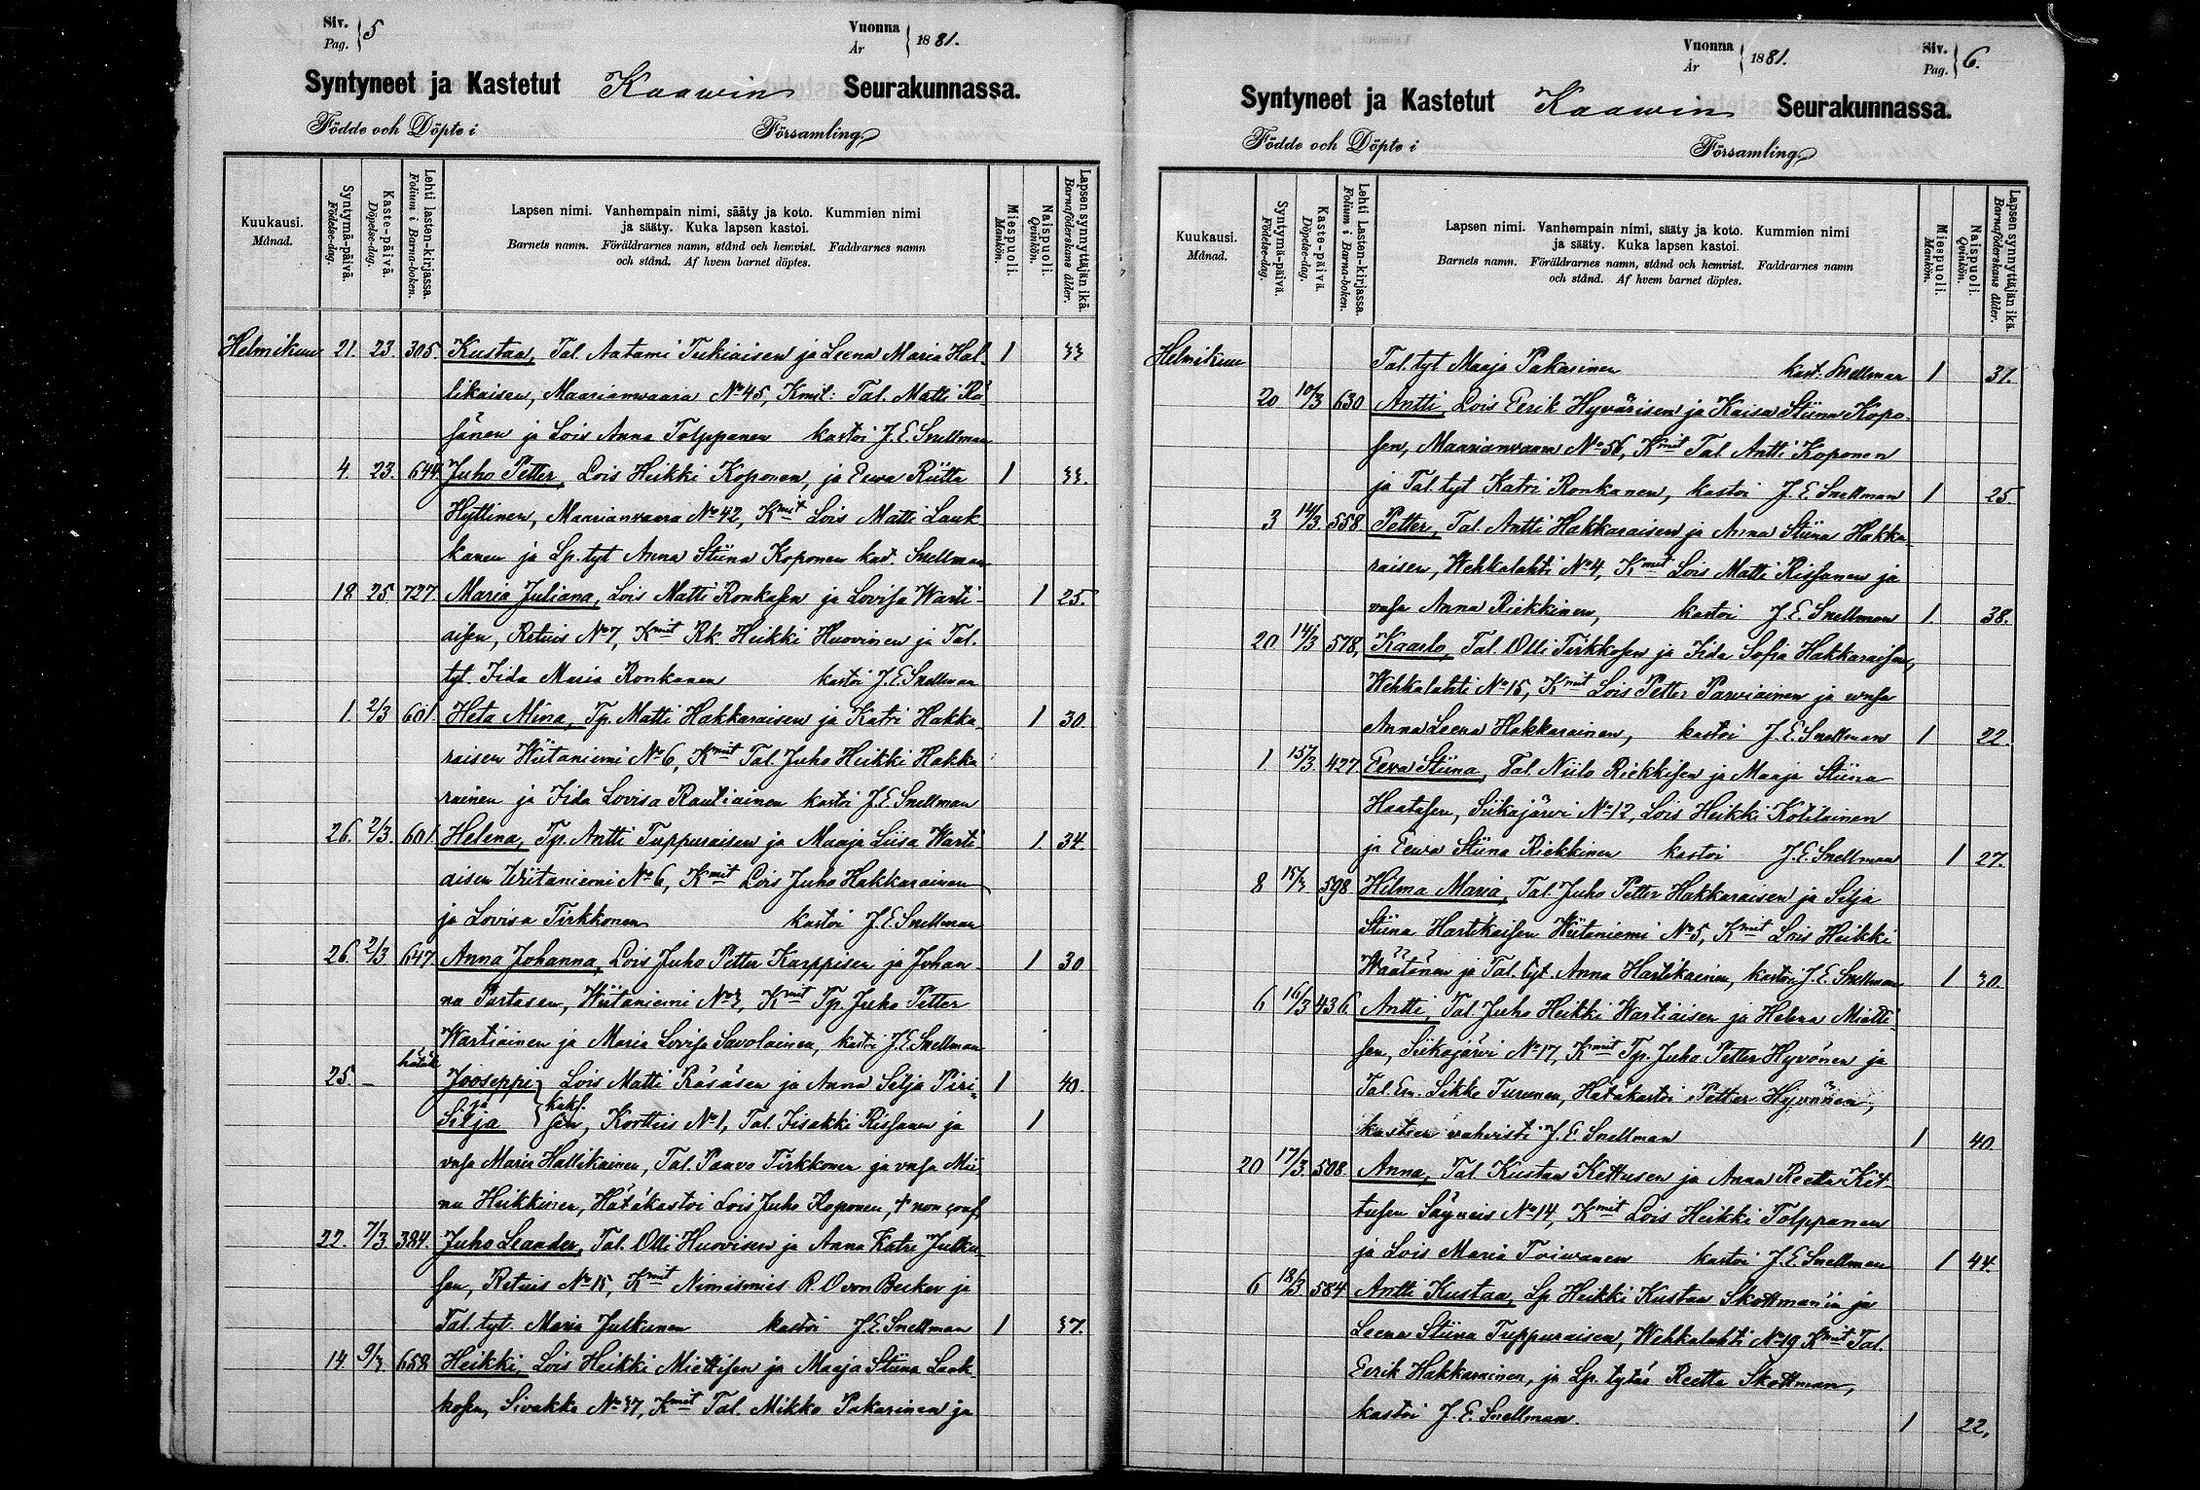 Siv. Pag. 5
Vuonna År 1881.
Syntyneet ja Kastetut Kaawin Seurakunnassa.
Födde och Döpte i Församling
Kuukausi. Månad.
Syntymä-päivä. Födelse-dag.
Kaste-päivä. Döpelse-dag.
Lehti lasten-kirjassa. Folium i Barna-boken.
Lapsen nimi. Vanhempain nimi, sääty ja koto. Kummien nimi
ja sääty. Kuka lapsen kastoi.
Barnets namn. Föräldrarnes namn, stånd och hemvist. Faddrarnes namn
och stånd. Af hvem barnet döptes.
Miespuoli. Mankön.
Naispuoli. Qvinkön.
Lapsen synnyttäjän ikä. Barnaföderskans ålder.
Helmikuu 21. 23. 305 Kustaa, Tal. Aatami Tukiaisen ja Leena Maria Hal- 1 33
likaisen, Maarianwaara No 45, Kmit: Tal. Matti Rä-
sänen ja Lois Anna Tolppanen kastoi J. E. Snellman
4. 23. 644. Juho Petter, Lois Heikki Koponen, ja Eewa Riitta 1 33.
Hyttinen, Maarianwaara No 42, Kmit Lois Matti Lauk-
kanen ja Lp. tyt Anna Stiina Koponen kast. Snellman
18 25 727 Maria Juliana, Lois Matti Ronkasen ja Lovisa Warti- 1 25.
aisen, Retuis No 7, Kmit Rk. Heikki Huovinen ja Tal.
tyt. Iida Maria Ronkanen kastoi J. E. Snellman
1. 2/3 601 Heta Miina, Tp. Matti Hakkaraisen ja Katri Hakka- 1 30.
raisen Wiitaniemi No 6, Kmit Tal. Juho Heikki Hakka
rainen ja Iida Lovisa Rautiainen kastoi J. E. Snellman
26. 2/3. 601 Helena, Tp. Antti Tuppuraisen ja Maaja Liisa Warti- 1. 34.
aisen Wiitaniemi No 6, Kmit Lois Juho Hakkarainen
ja Lovisa Tirkkonen kastoi J. E. Snellman
26. 2/3 647 Anna Johanna, Lois Juho Petter Karppisen ja Johan- 1 30
na Partasen, Wiitaniemi No 3, Kmit Tp. Juho Petter
Wartiainen ja Maria Lovisa Savolainen, kastoi J. E. Snellman
25. – hätäk Jooseppi Lois Matti Räsäsen ja Anna Silja Piri- 1 40.
ja Silja kaks. sen, Kortteis No 1, Tal. Iisakki Rissanen ja 1
vmsa Maria Hallikainen, Tal. Paavo Tirkkonen ja vmsa Mii-
na Heikkinen, Hätäkastoi Lois Juho Koponen, † non conf.
22. 7/3. 384. Juho Leander, Tal. Olli Huovisen ja Anna Katri Julku-
sen, Retuis No 15, Kmit Nimismies R. O von Becker ja
Tal. tyt. Maria Julkunen kastoi J. E. Snellman 1 37.
14 9/3. 658 Heikki, Lois Heikki Miettisen ja Maaja Stiina Laak-
kosen, Sivakka No 37, Kmit Tal. Mikko Pakarinen ja
Vuonna År 1881.
Siv. Pag. 6.
Syntyneet ja Kastetut Kaawin Seurakunnassa.
Födde och Döpte i Församling
Kuukausi. Månad.
Syntymä-päivä. Födelse-dag.
Kaste-päivä. Döpelse-dag.
Lehti Lasten-kirjassa. Folium i Barna-boken.
Lapsen nimi. Vanhempain nimi, sääty ja koto. Kummien nimi
ja sääty. Kuka lapsen kastoi.
Barnets namn. Föräldrarnes namn, stånd och hemvist. Faddrarnes namn
och stånd. Af hvem barnet döptes.
Miespuoli. Mankön.
Naispuoli. Qvinkön.
Lapsen synnyttäjän ikä. Barnaföderskans ålder.
Helmikuu Tal. tyt Maaja Pakarinen kast. Snellman 1 31.
20 10/3 630 Antti, Lois Eerik Hyvärisen ja Kaisa Stiina Kopo-
sen, Maarianvaara No 56, Kmit Tal Antti Koponen
ja Tal. tyt Katri Ronkanen, kastoi J. E. Snellman 1 25
3 14/3. 558 Petter, Tal. Antti Hakkaraisen ja Anna Stiina Hakka-
raisen, Wehkalahti No 4, Kmit Lois Matti Rissanen ja
vmsa Anna Riekkinen, kastoi J. E. Snellman 1. 38.
20 14/3 578, Kaarlo, Tal. Olli Tirkkosen ja Iida Sofia Hakkaraisen,
Wehkalahti No 15, Kmit Lois Petter Parviainen ja vmsa
Anna Leena Hakkarainen, kastoi J. E. Snellman 1 22.
1. 15/3 427 Eewa Stiina, Tal. Niilo Riekkisen ja Maaja Stiina
Haatasen, Siikajärvi No 12, Lois Heikki Kotilainen
ja Eewa Stiina Riekkinen kastoi J. E. Snellman 1 27.
8 15/3 598 Hilma Maria, Tal. Juho Petter Hakkaraisen ja Silja
Stiina Hartikaisen Wiitaniemi No 5, Kmit Lois Heikki
Wäätänen ja Tal. tyt. Anna Hartikainen, kastoi J. E. Snellman 1 30.
6 16/3 436 Antti, Tal. Juho Heikki Wartiaisen ja Helena Mietti-
sen, Siikajärvi No 17, Kmit Tp. Juho Petter Hyvönen ja
Tal. Em. Sikke Turunen, Hätäkastoi Petter Hyvönen,
kasteen vahvisti J. E. Snellman 1 40.
20 17/3. 508 Anna, Tal. Kustaa Kettusen ja Anna Reetta Ket-
tusen Säyneis No 14, Kmit Lois Heikki Tolppanen
ja Lois Maria Toiwanen kastoi J. E. Snellman 1 44.
6 18/3 584 Antti Kustaa, Lp Heikki Kustaa Skottman'in ja
Leena Stiina Tuppuraisen, Wehkalahti No 19 Kmit Tal.
Eerik Hakkarainen, ja Lp. tytär Reetta Skottman,
kastoi J. E. Snellman. 1 22,